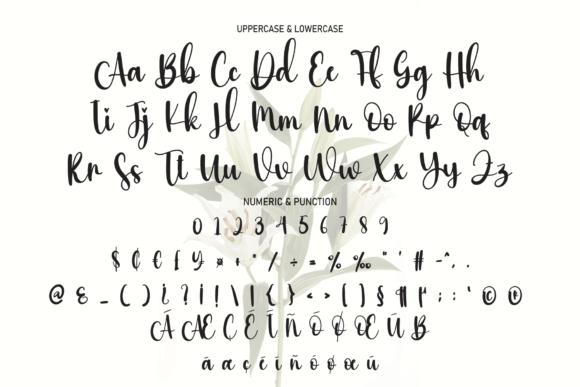 UPPERCASE & LOWERCASE
Aa Bb Cc Dd Ee Ff Gg Hh
Ii Jj Kk Ll Mm Nn Oo Pp Qq
Rr Ss Tt Uu Vv Ww Xx Yy Zz
NUMERIC & PUNCTION
0 1 2 3 4 5 6 7 8 9
$ ¢ € £ ¥ ¤ + * / ÷ = % ‰ " ' # - ^ , .
@ & _ ( ) ¿ ? ¡ ! \ | { } < > [ ] § ¶ µ ; : ' © ®
Á Æ Ç É Í Ñ Ó Ø Œ Ú ß
á æ ç é í ñ ó ø œ ú